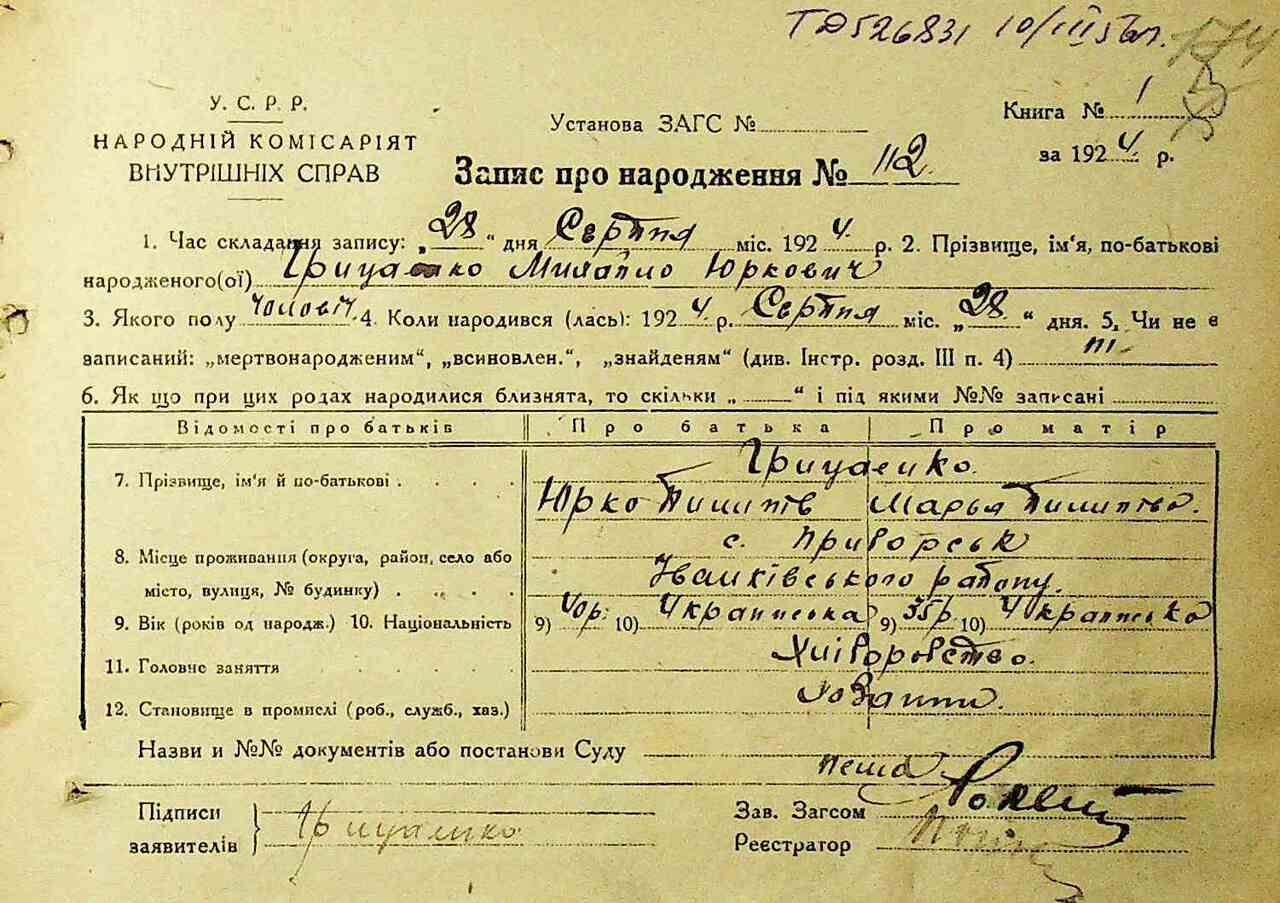 ТД526831 10/III 56г.
У. С. Р. Р.
НАРОДНІЙ КОМІСАРІЯТ
ВНУТРІШНІХ СПРАВ
Установа ЗАГС №
Книга № 1
за 1924 р.
Запис про народження № 112
1. Час складання запису: „28“ дня Серпня міс. 1924 р. 2. Прізвище, ім'я, по-батькові
народженого(ої) Гриценко Михайло Юркович
3. Якого полу чоловіч. 4. Коли народився (лась): 1924 р. Серпня міс. „28“ дня. 5. Чи не є
записаний: „мертвонародженим“, „всиновлен.“, „знайденям“ (див. Інстр. розд. III п. 4) ні
6. Як що при цих родах народилися близнята, то скільки „ “ і під якими №№ записані
Відомості про батьків Про батька Про матір
7. Прізвище, ім'я й по-батькові Гриценко.
Юрко Пилипів Марья Пилипівна.
8. Місце проживання (округа, район, село або
місто, вулиця, № будинку) с. Приборськ
Іванківського району.
9. Вік (років од народж.) 10. Національність 9) 40р. 10) Українська 9) 35р. 10) Українська
11. Головне заняття Хліборобство.
12. Становище в промислі (роб., служб., хаз.) Хазяїни.
Назви и №№ документів або постанови Суду
нема
Підписи
заявителів Гриценко
Зав. Загсом
Реєстратор